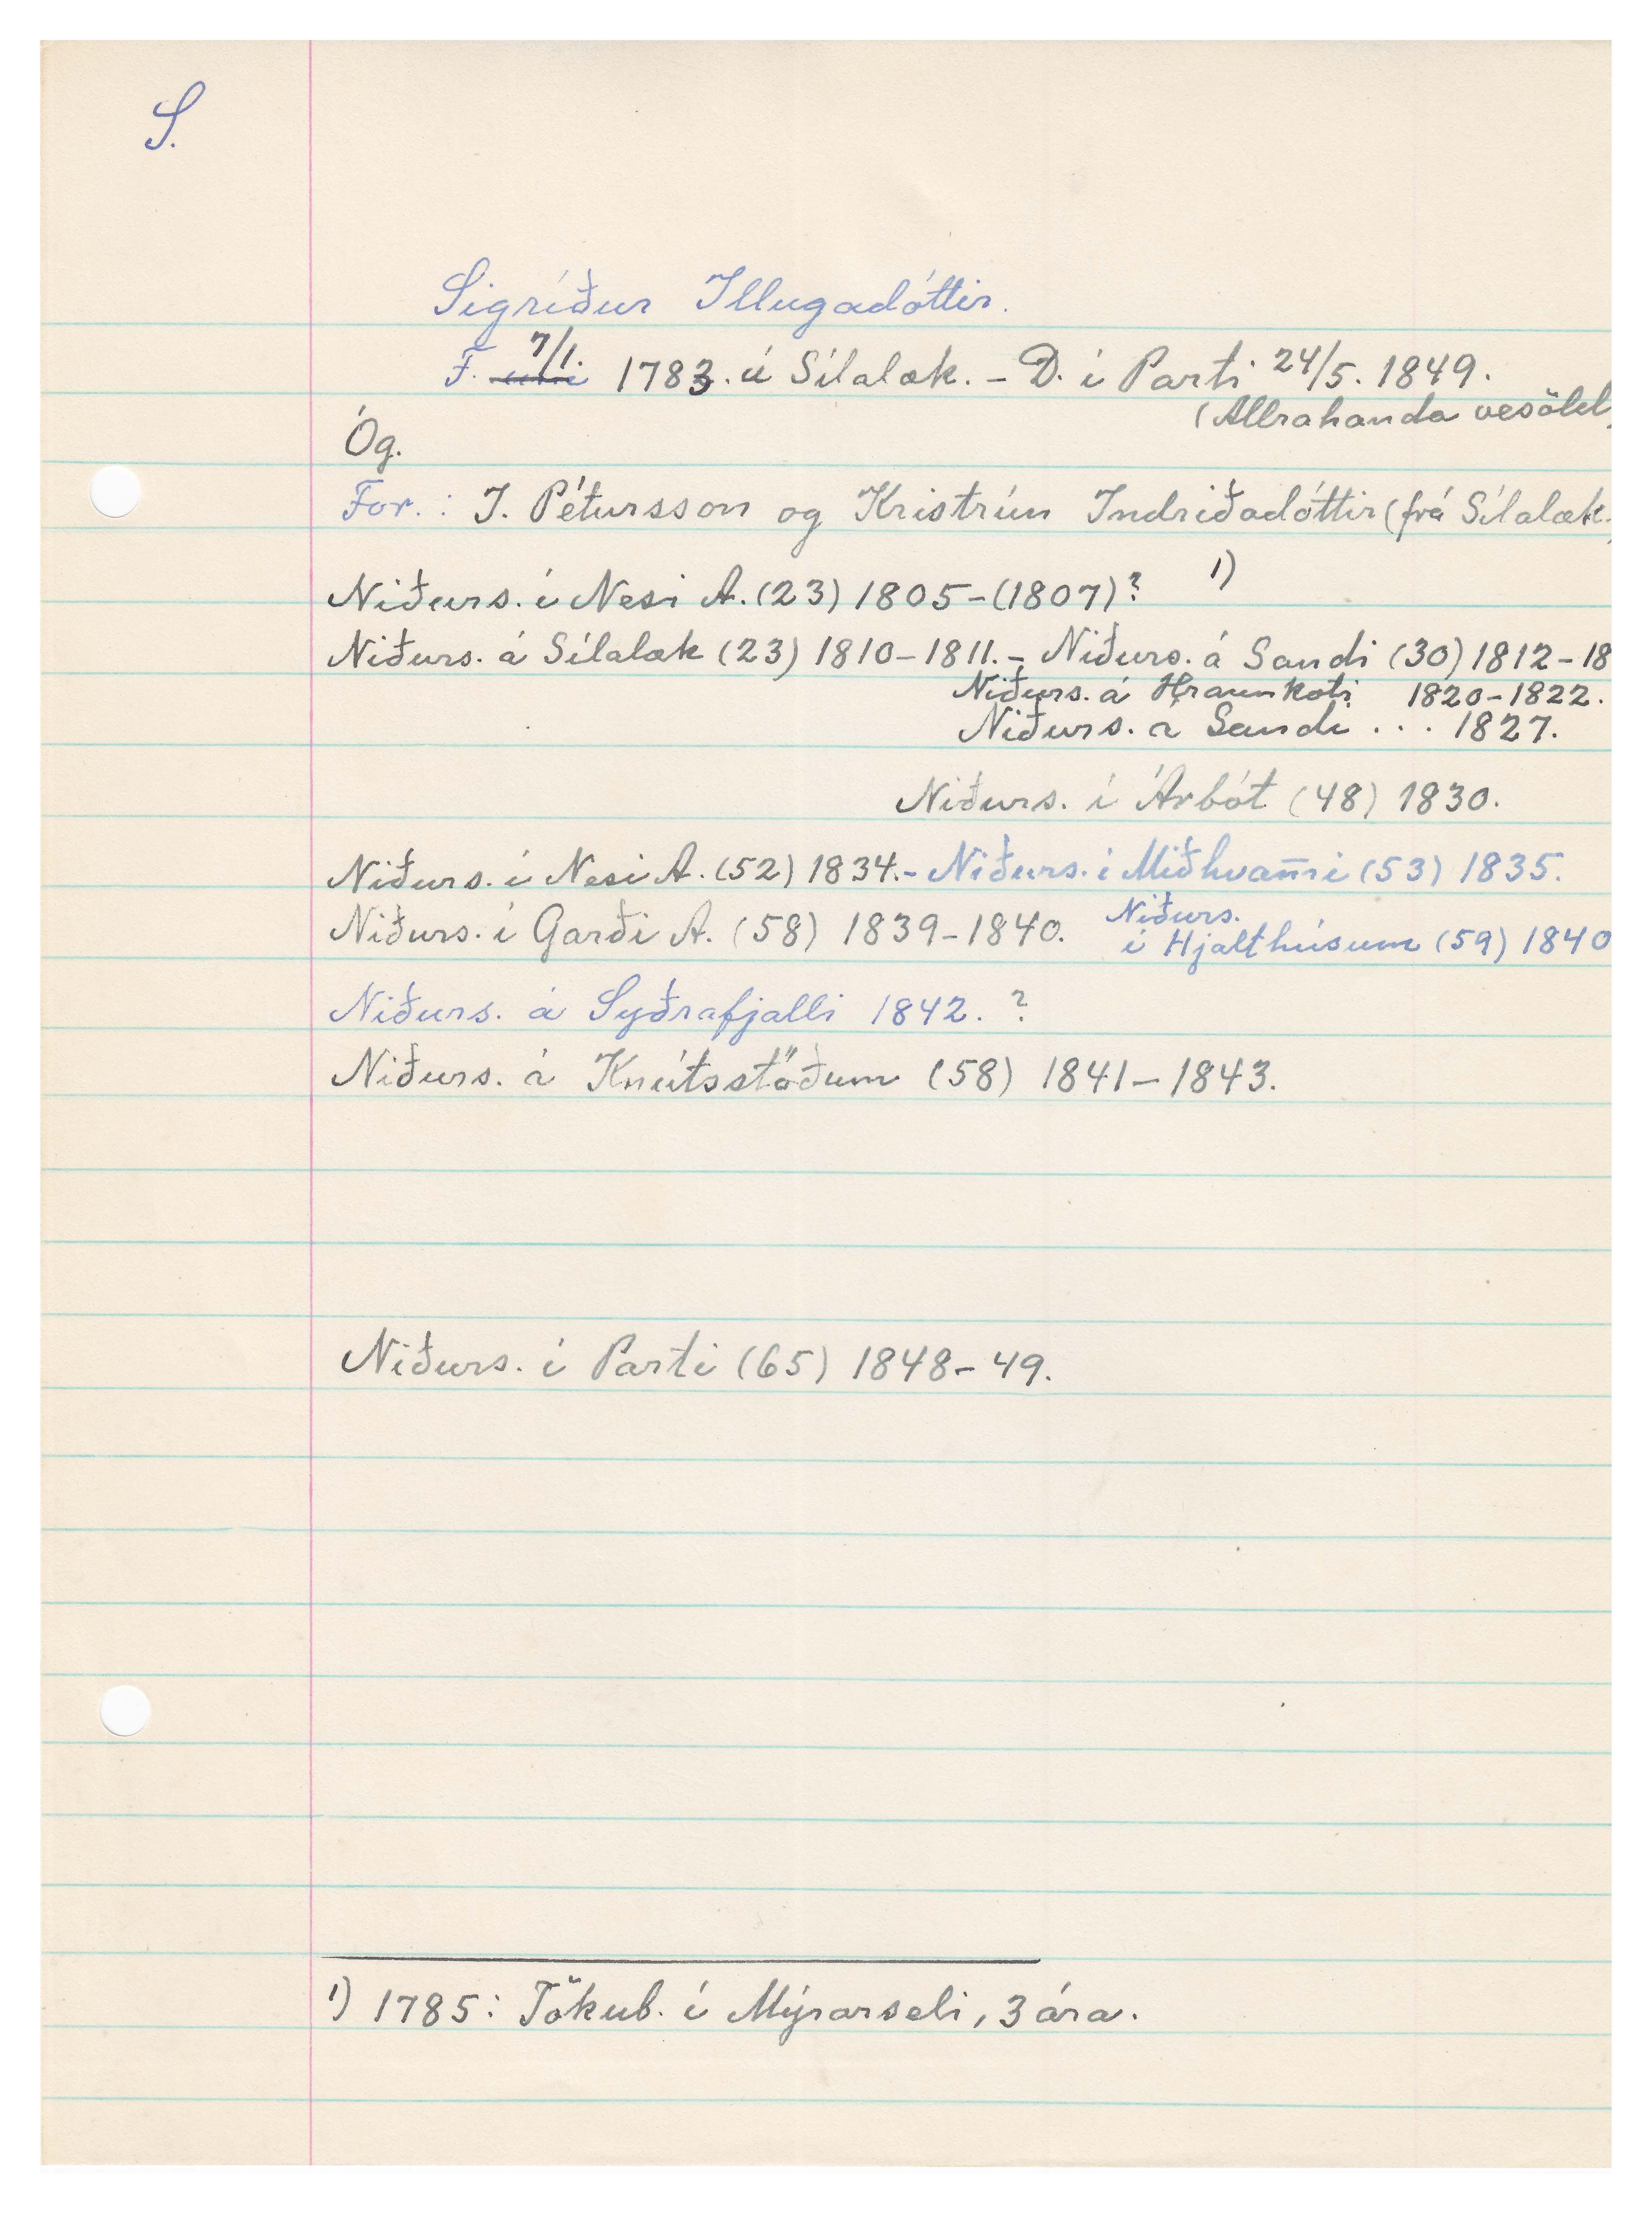 S.
Sigríður Illugadóttir.
F. 7/1. 1783. á Sílalæk. – D. í Parti 24/5. 1849.
(Allrahanda vesöld
Óg.
For.: I. Pétursson og Kristrún Indriðadóttir (frá Sílalæk.
Niðurs. í Nesi A. (23) 1805–(1807)? 1)
Niðurs. á Sílalæk (23) 1810–1811. – Niðurs. á Sandi (30) 1812–18
Niðurs. á Hraunkoti 1820–1822.
Niðurs. á Sandi ... 1827.
Niðurs. í Árbót (48) 1830.
Niðurs. í Nesi A. (52) 1834. – Niðurs. í Miðhvam̄i (53) 1835.
Niðurs. í Garði A. (58) 1839–1840. Niðurs.
í Hjalthúsum (59) 1840
Niðurs. á Syðrafjalli 1842. ?
Niðurs. á Knútsstöðum (58) 1841–1843.
Niðurs. í Parti (65) 1848–49.
1) 1785: Tökub. í Mýrarseli, 3 ára.